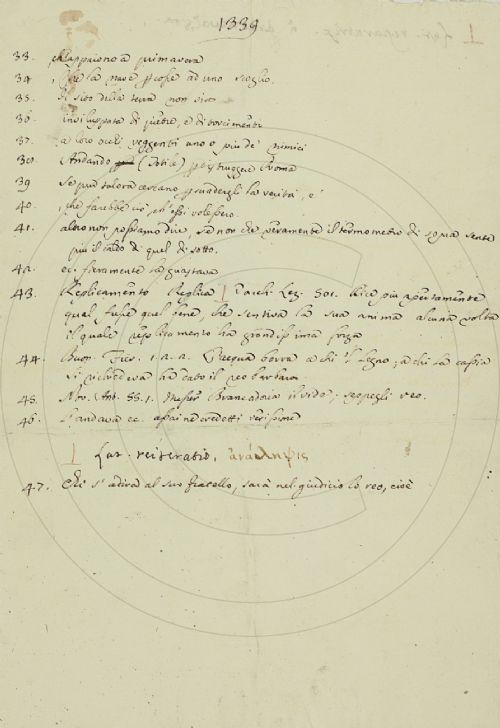 1339
33. ch'appaiono a primavera
34. , che la nave percosse ad uno scoglio.
35. Il sito della terra non
36. inviluppata di pietre, e di torcimenti
37. a loro occhi veggenti uno o più de' nimici
38. Andando (Totile) per distruggere Roma
39 Se pur talora cercano la verità, e
40. , che farebbe ciò, ch'essi volessero.
41. altro non possiamo dire, se non che veramente il termometro di sopra sente
più il caldo di quel di sotto.
42. ec. fieramente la guastava
43. Replicamento Replica ⊥ Pacch. Lez. 301. Dice più apertamente
qual fusse quel bene, che sentiva la sua anima alcuna volta
il quale replicamento ha grandissima forza
44. Buon. Fier. 1. 2. 2. a chi 'l legno, a chi la cassia
si richiedeva ha dato il reo barbaro
45. Nov. Ant. 55. 1. Messer Brancadoria il vide, reo.
46. L'andava ec. assai ne credetti
⊥ Lat. reiteratio, ἀνάληψις
47. Chi s'adira al suo fratello, sarà nel giudicio lo reo, cioè